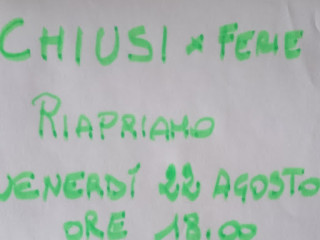 CHIUSI x FERIE
RIAPRIAMO
VENERDÍ 22 AGOSTO
ORE 18.00